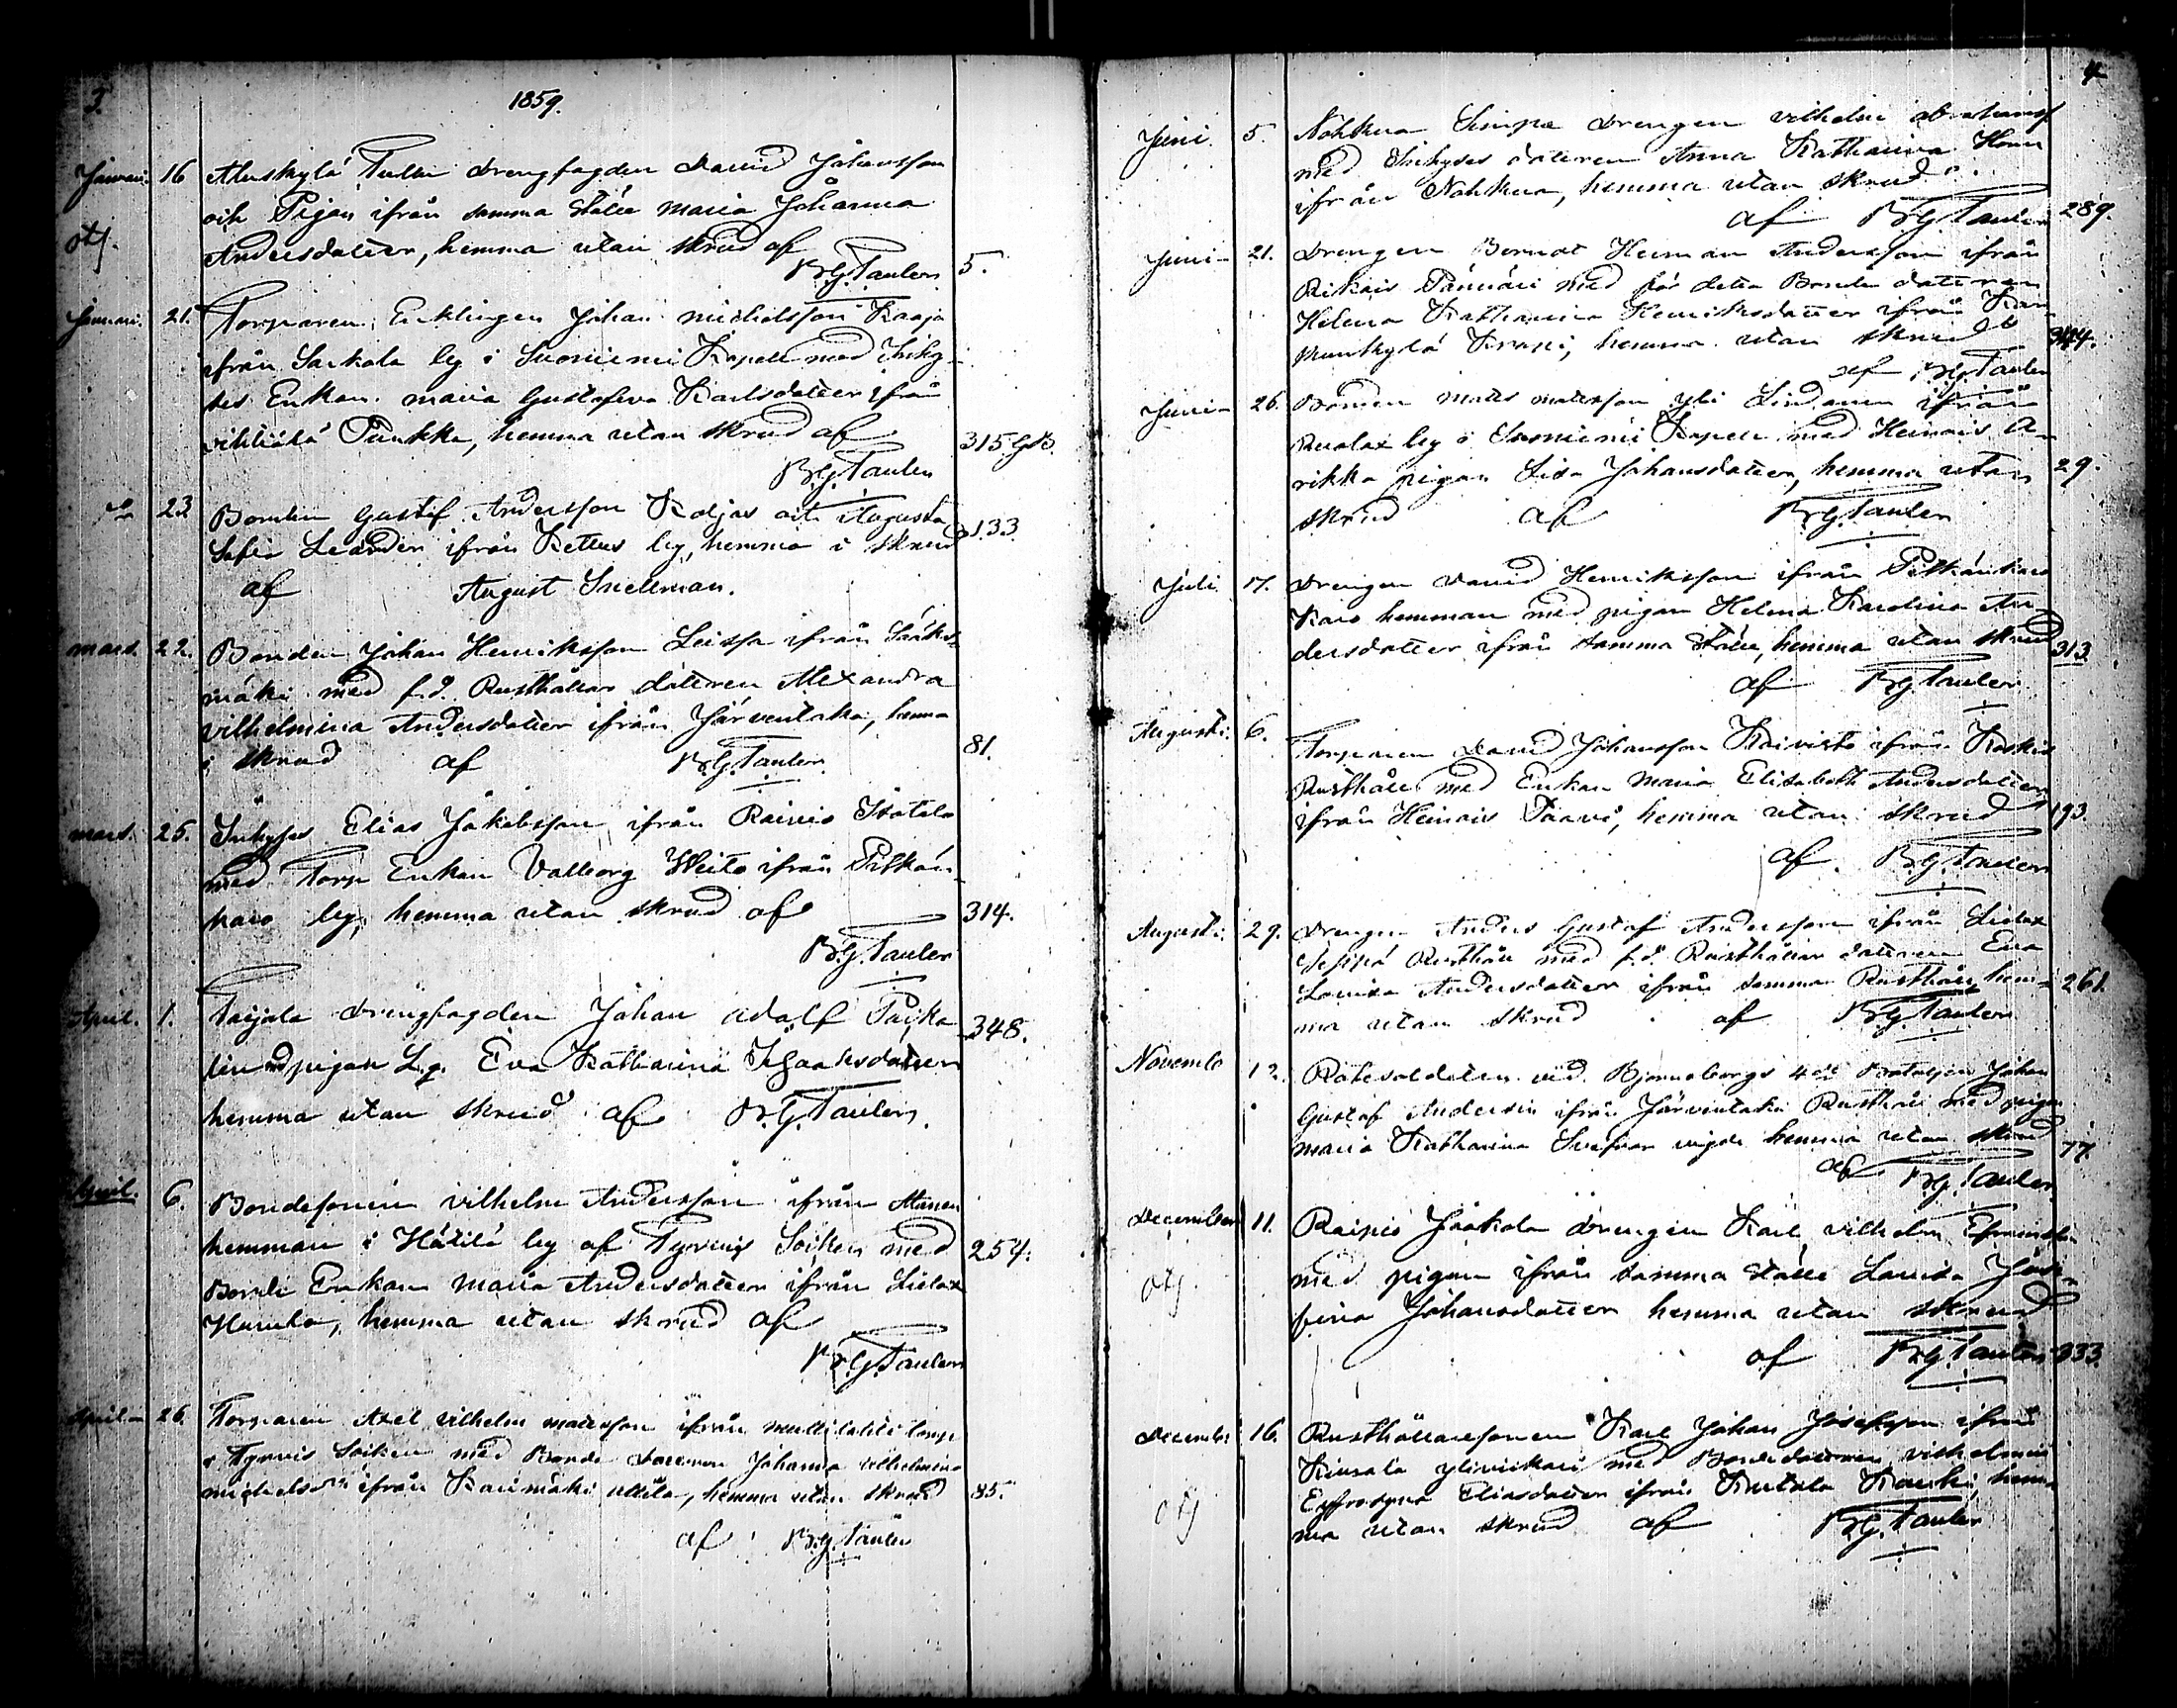 3.
1859.
Januari. 16 Alluskylä Tulu drengfogden David Johansson
och Pigan ifrån samma ställe Maria Johanna
otf.
Andersdotter, hemma utan skrud af
B.G. Taulér 5.
Januari. 21. Torparen, Enklingen Johan Michelsson Kaaja
ifrån Sarkola by i Suoniemi Kapell med Inhy-
ses Enkan Maria Gustafva Karlsdotter ifrån
Punkka, hemma utan skrud af
315.
B.G. Taulér
23 Bonden Gustaf Andersson Koljas och Augusta
133.
Sofia Leander ifrån by, hemma i skrud
af August Snellman.
Mars. 22. Bonden Johan Henriksson ifrån Sääks-
mäki med f.d. Rusthållar dottren Alexandra
Vilhelmina Andersdotter ifrån Järventaka, hemma
i skrud af B.G. Taulér 81.
Mars. 25. Inhyses Elias Jakobsson ifrån Rainio
med Torp Enkan Valborg ifrån Pitkän-
karo by, hemma utan skrud af 314.
B.G. Taulér
April. 1. drengfogden Johan Adolf
348.
pigan Eva Katharina Isaaksdotter
hemma utan skrud af B.G. Taulér.
April. 6. Bondesonen Vilhelm Andersson ifrån
hemman i by af Tyrvis Soiken med 254.
Bonde Enkan Maria Andersdotter ifrån
hemma utan skrud af
B.G. Taulér
April 26. Torparen Axel Vilhelm Matsson ifrån
i Tyrvis Soiken med Bonde dottren Johanna Vilhelmina
ifrån hemma utan skrud 85.
af B.G. Taulér
4
Juni 5. Nohkua drengen Vilhelm Abrahamsson
med Inhyses dottren Anna Katharina
ifrån Nohkua, hemma utan skrud
af B.G. Taulér 289.
Juni 21. Drengen Berndt Herman Andersson ifrån
med för detta Bonde dottren
Helena Katharina Henriksdotter ifrån Kar-
hemma utan skrud 344.
af B.G. Taulér
Juni 26. Bonden Matts Mattsson Yli ifrån
by i Suoniemi Kapell med Heinois A-
rikka pigan Lisa Johansdotter, hemma utan 29.
skrud af B.G. Taulér
Juli 17. Drengen David Henriksson ifrån Pitkänkaro
Karo hemman med pigan Helena Karolina An-
dersdotter ifrån samma ställe, hemma utan skrud 313
af B.G. Taulér
Augusti. 6. Torparen David Johansson Koivisto ifrån Koskis
Rusthåll med Enkan Maria Elisabeth Andersdotter
ifrån Heinois Paavi, hemma utan skrud 193.
af B.G. Taulér
Augusti 29. Drengen Anders Gustaf Andersson ifrån
Rusthåll med f.d. Rusthållar dottren Eva
Lovisa Andersdotter ifrån samma Rusthåll, hem- 261.
ma utan skrud af B.G. Taulér
Novemb 12. Rotesoldaten vid Björneborgs 4de Bataljon Johan
Gustaf ifrån Järventaka Rusthåll med pigan
Maria Katharina vigde hemma utan skrud 77.
af B.G. Taulér
December 11. Raipio Jaakola drengen Karl Vilhelm Efraimsson
med pigan ifrån samma ställe Lovisa Jose-
otf
fina Johansdotter hemma utan skrud
af B.G. Taulér 333
December 16. Rusthållaresonen Karl Johan Josefsson ifrån
Kiurala med Bondedottren Vilhelmina
otf
Eufrosyna Eliasdotter ifrån Kutala Kauki, hem-
ma utan skrud af B.G. Taulér